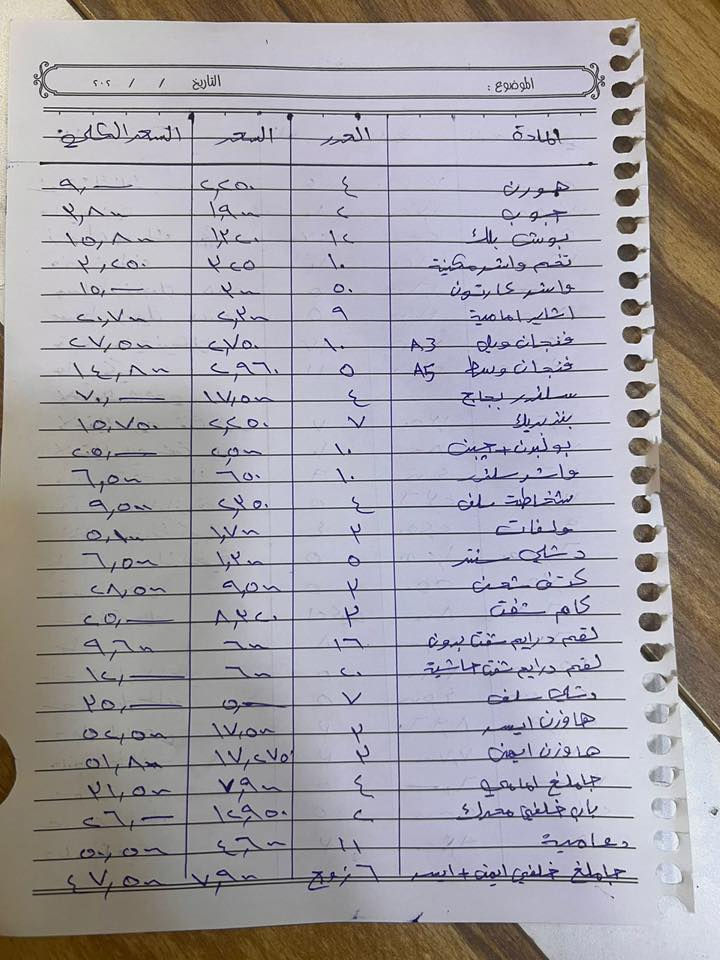 الموضوع : التاريخ / / ٢٠٢
المادة العدد السعر السعر الكلي
هورن ٤ ٢,٢٥٠ ٩,٠٠٠
جوب ٢ ١,٩٠٠ ٣,٨٠٠
بوش بلك ١٢ ١,٣٢٠ ١٥,٨٠٠
تخم واشر مكينة ١٠ ٣٢٥ ٣,٢٥٠
واشر كارتون ٥٠ ٣٠٠ ١٥,٠٠٠
اشاير امامية ٩ ٢,٣٠٠ ٢٠,٧٠٠
فنجان A3 ١٠ ٢,٧٥٠ ٢٧,٥٠٠
فنجان وسط A5 ٥ ٢,٩٦٠ ١٤,٨٠٠
سلندر بجاج ٤ ١٧,٥٠٠ ٧٠,٠٠٠
بندريك ٧ ٢,٢٥٠ ١٥,٧٥٠
بولبرن + جبن ١٠ ٢,٥٠٠ ٢٥,٠٠٠
واشر سلف ١٠ ٦٥٠ ٦,٥٠٠
شخاطة سلف ٤ ٢,٣٥٠ ٩,٥٠٠
ولفات ٣ ١,٧٠٠ ٥,١٠٠
دشلي سنتر ٥ ١,٣٠٠ ٦,٥٠٠
كتف شحن ٣ ٩,٥٠٠ ٢٨,٥٠٠
كام شفت ٣ ٨,٣٢٠ ٢٥,٠٠٠
لقم درايم شفت بدون ١٦ ٦٠٠ ٩,٦٠٠
لقم درايم شفت حاشية ٢٠ ٦٠٠ ١٢,٠٠٠
دشلي سلف ٧ ٥,٠٠٠ ٣٥,٠٠٠
هاوزن ايسر ٣ ١٧,٥٠٠ ٥٢,٥٠٠
هاوزن ايمن ٣ ١٧,٢٧٥ ٥١,٨٠٠
جاملغ امامي ٤ ٧,٩٠٠ ٣١,٥٠٠
باب خلفي محرك ٢ ١٢,٩٥٠ ٢٦,٠٠٠
دعامية ١١ ٤,٦٠٠ ٥٠,٥٠٠
جاملغ خلفي ايمن + ايسر ٦ زوج ٧,٩٠٠ ٤٧,٥٠٠